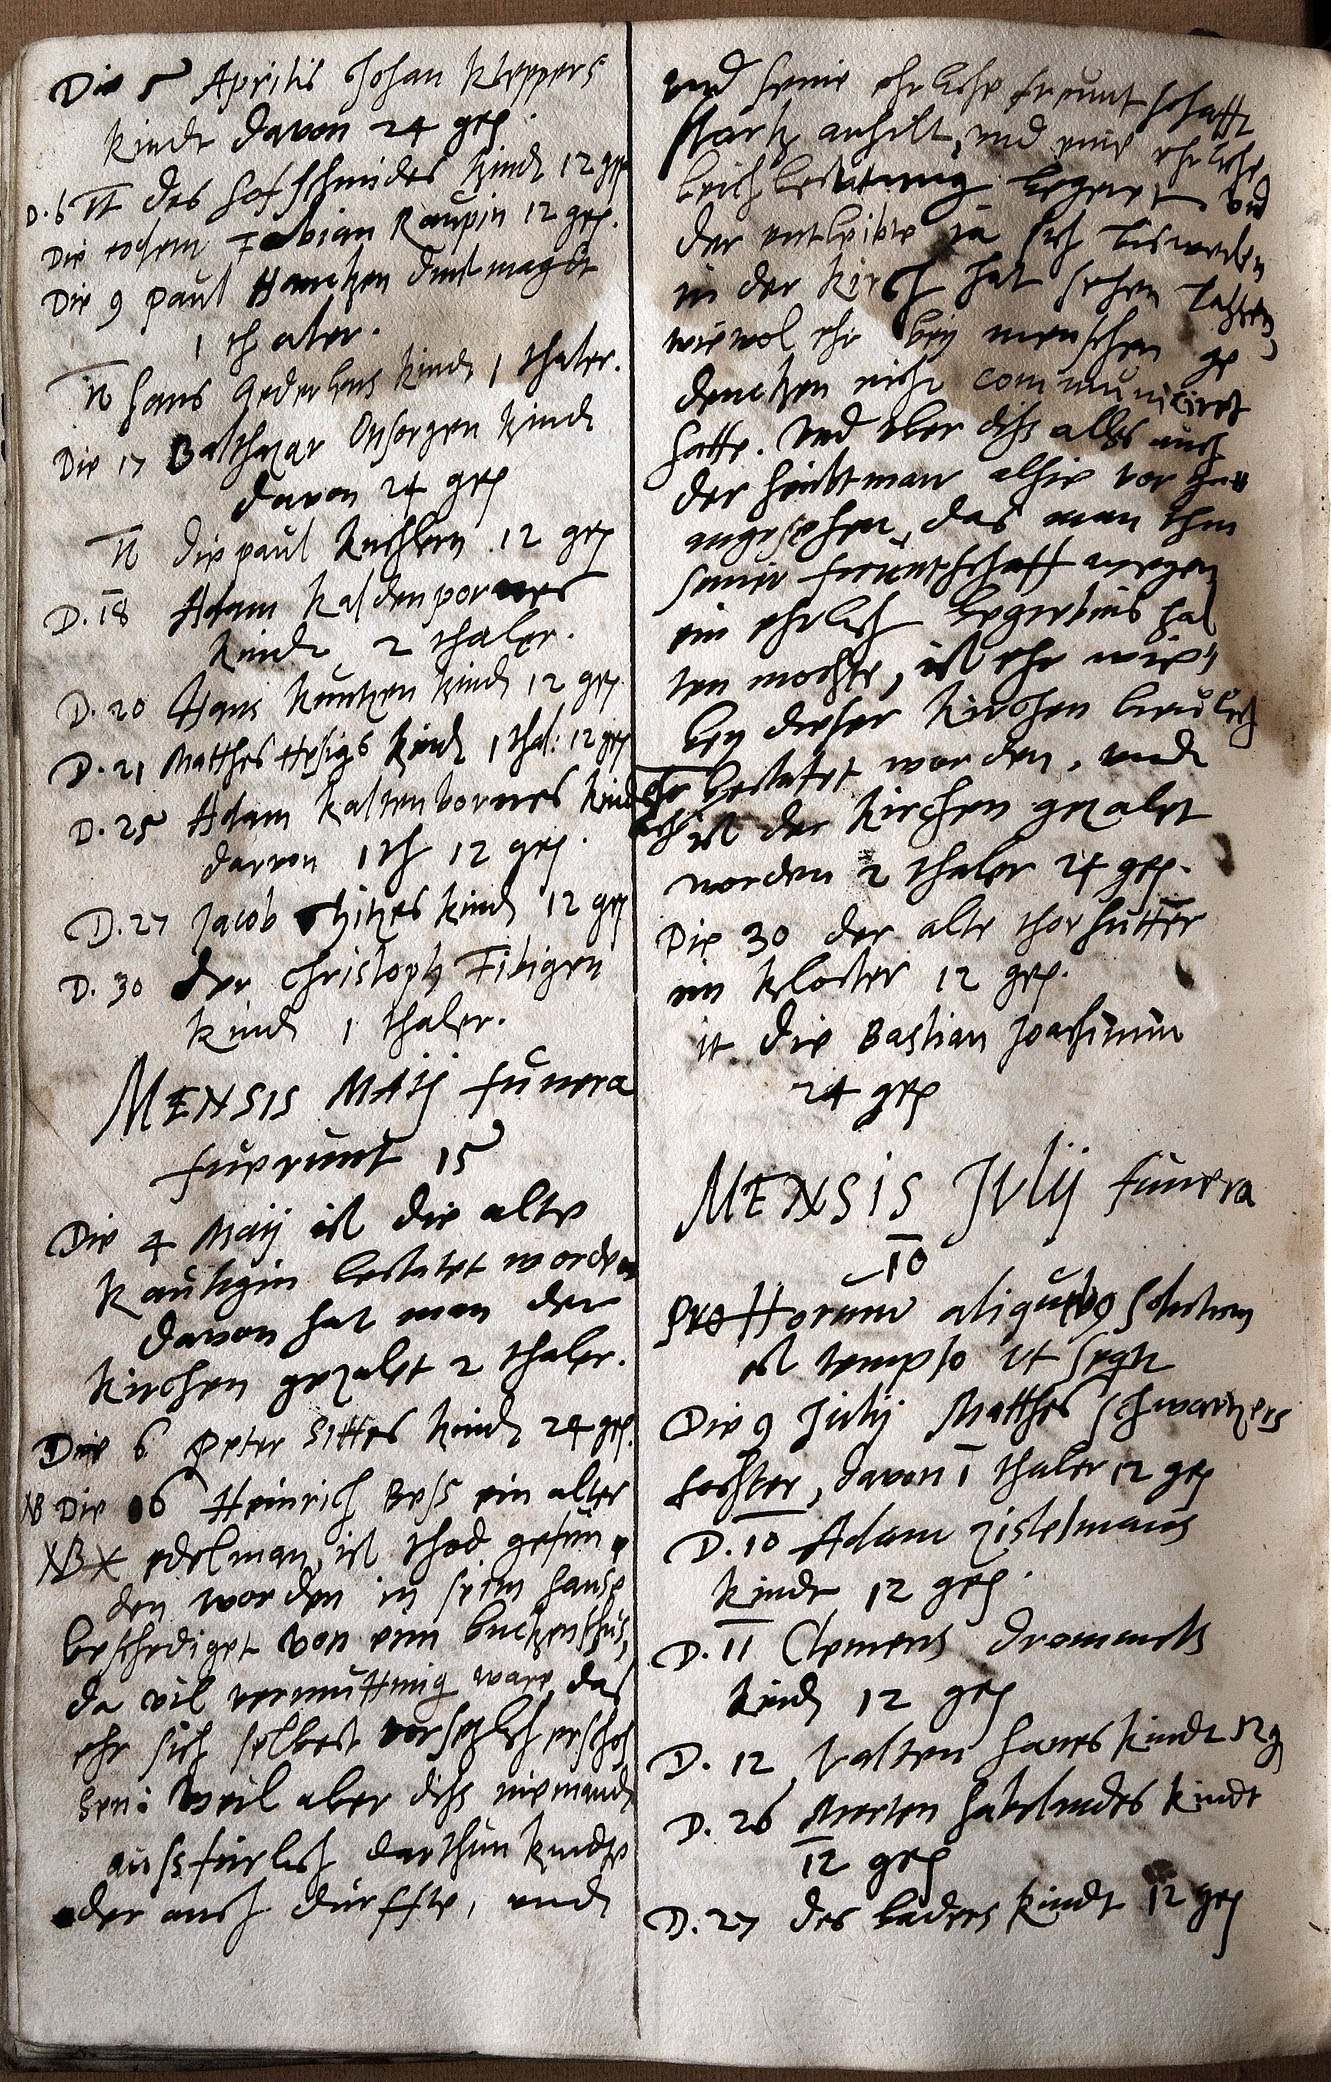 Die 5 Aprilis Johan Kleppers
kindt davon 24 gr.
D. 6 It des hoffschmides kind 12 gr
Die eodem Fabian Raupin 12 gr.
Die 9 Paul Hantzen dinstmagdt
1 thaler.
It hans kindt 1 thaler.
Die 17 Balthazar Onsorgen kindt
davon 24 gr
It die paul 12 gr
D. 18 Adam Kaldenpornes
kindt 2 thaler.
D. 20 Hans Kuntzen kindt 12 gr
D. 21 Matthes Hesigs kindt 1 thal: 12 gr
D. 25 Adam Kaltenbornes kindt
darvon 1 th 12 gr.
D. 27 Jacob kindt 12 gr
D. 30 der Christoph
kindt 1 thaler.
MENSIS MAij funera
fuerunt 15
Die 4 Maij ist die alte
bestatet worden
davon hat man der
kirchen gezalet 2 thaler.
Die 6 Peter Sittes kindt 24 gr.
NB Die 06 Heinrich Bess ein alter
NB X edelman, ist thod gefun
den worden in seim hause
beschediget von eim buchzenschus,
da vil vermuttung ware, das
ehr sich selbest vorsezlich erschos
sen: Weil aber diss niemandt
aussfürlich darthun kundte
oder auch durffte, undt
und seine ehrliche freuntschafft
starck anhilt, und eine ehrliche
leichbestattung begeret, und
der entleibte ja sich bisweilen
in der kirch hat sehen lassen,
wiewol ehr bey menschen ge
dencken nicht communiciret
hatte. Und aber diss alles auch
der heubtman alhie vor gut
angesehen, das man ihm
seiner freuntschafft wegen
ein ehrlich begrebnis hal
ten mochte, ist ehr
bey dieser kirchen
bestatet worden, undt
ist der kirchen gezalet
worden 2 thaler 24 gr.
Die 30 der alte thorhutter
im kloster 12 gr.
it die Bastian Joachimin
24 gr
MENSIS JVlij funera
10
aliquibus solutum
est templo ut seqtr
Die 9 Julij Matthes Schwartzers
tochter, davon 1 thaler 12 gr
D. 10 Adam Zistelmans
kindt 12 gr.
D. 11 Clemens
kindt 12 gr
D. 12 Valten hanes kindt 12 g
D. 26 Merten kindt
12 gr
D. 27 des baders kindt 12 gr